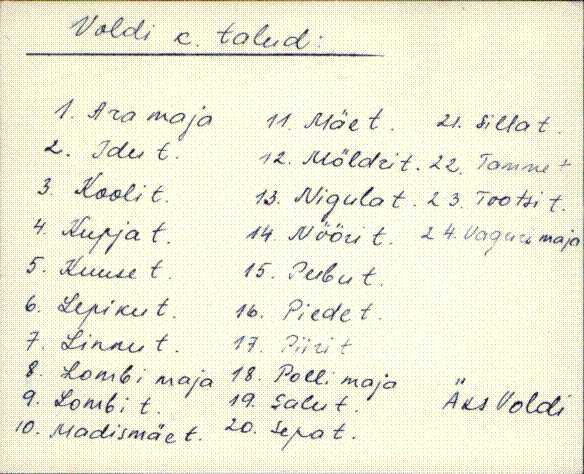 Voldi k. talud:
1. Aramaja
2. Idu t.
3. Kooli t.
4. Kupja t.
5. Kuuse t.
6. Lepiku t.
7. Linnu t.
8. Lombi maja
9. Lombi t.
10. Madismäe t.
11. Mäe t.
12. Möldri t.
13. Nigula t.
14. Nööri t.
15. Peebu t.
16. Piede t.
17. Piiri t
18. Polli maja
19. Salu t.
20. Sepa t.
21. Silla t.
22. Tamme t
23. Tootsi t.
24. Vaguri maja
Äks Voldi